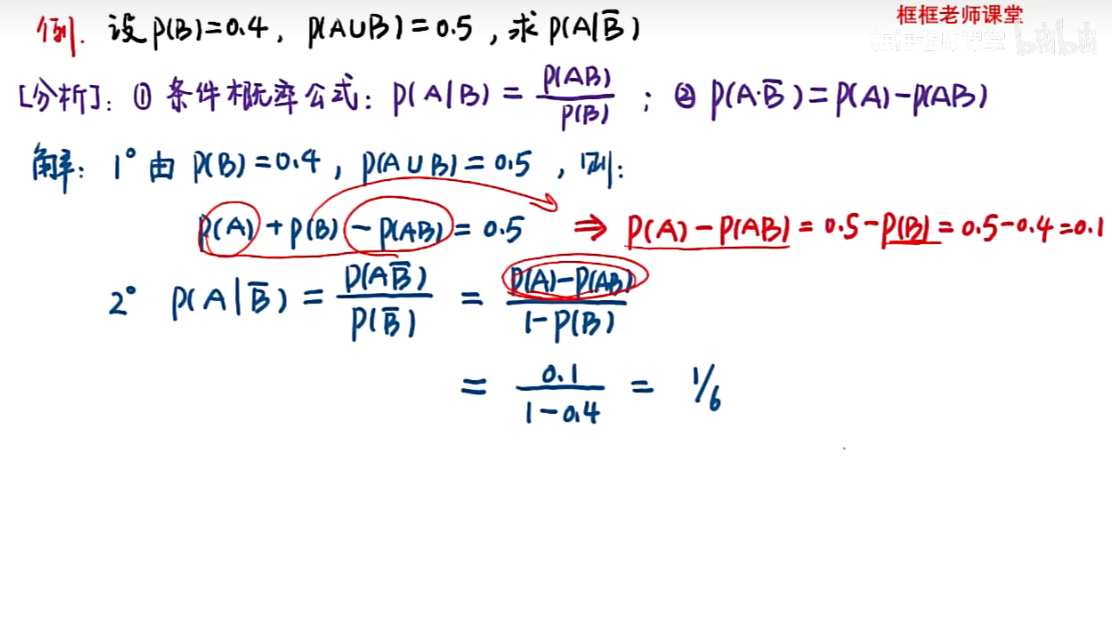 框框老师课堂
框框老师课堂 bilibili
例. 设 P(B)=0.4, P(A∪B)=0.5, 求 P(A|B̅)
[分析]: ① 条件概率公式: P(A|B) = P(AB)/P(B) ; ② P(A·B̅)=P(A)-P(AB)
解: 1° 由 P(B)=0.4, P(A∪B)=0.5, 则:
P(A)+P(B)-P(AB)=0.5 ⇒ P(A)-P(AB)=0.5-P(B)=0.5-0.4=0.1
2° P(A|B̅) = P(AB̅)/P(B̅) = P(A)-P(AB)/1-P(B)
= 0.1/1-0.4 = 1/6